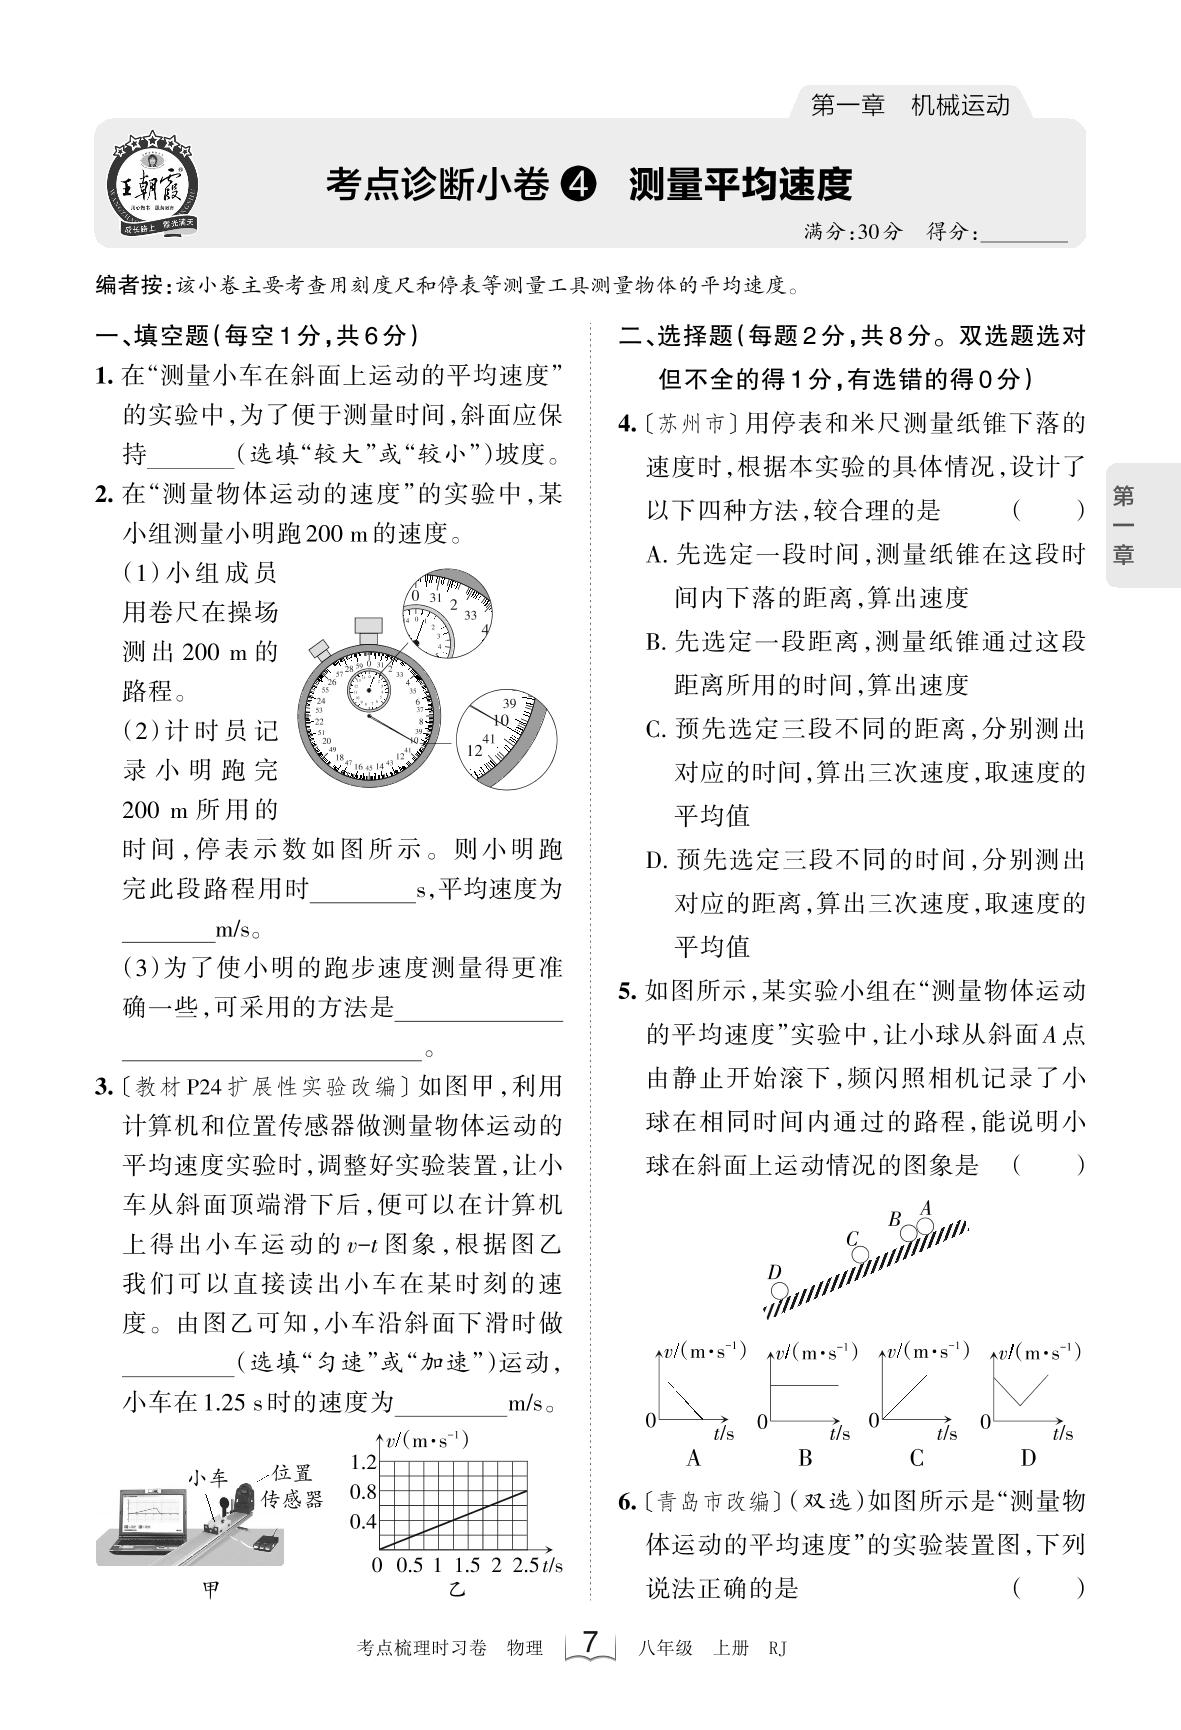 第一章 机械运动
王朝霞
成长路上 霞光满天
考点诊断小卷❹ 测量平均速度
满分:30分 得分:________
编者按:该小卷主要考查用刻度尺和停表等测量工具测量物体的平均速度。
一、填空题(每空1分,共6分)
1. 在“测量小车在斜面上运动的平均速度”
的实验中,为了便于测量时间,斜面应保
持________(选填“较大”或“较小”)坡度。
2. 在“测量物体运动的速度”的实验中,某
小组测量小明跑200 m的速度。
(1)小组成员
用卷尺在操场
测出 200 m 的
路程。
(2)计时员记
录小明跑完
200 m 所用的
时间,停表示数如图所示。则小明跑
完此段路程用时________s,平均速度为
________m/s。
(3)为了使小明的跑步速度测量得更准
确一些,可采用的方法是____________
________________________。
0 31 2 33 4
39 10 41 12
3.〔教材P24扩展性实验改编〕如图甲,利用
计算机和位置传感器做测量物体运动的
平均速度实验时,调整好实验装置,让小
车从斜面顶端滑下后,便可以在计算机
上得出小车运动的v-t图象,根据图乙
我们可以直接读出小车在某时刻的速
度。由图乙可知,小车沿斜面下滑时做
________(选填“匀速”或“加速”)运动,
小车在1.25 s时的速度为________m/s。
小车
位置
传感器
甲
v/(m·s⁻¹)
1.2
0.8
0.4
0 0.5 1 1.5 2 2.5 t/s
乙
二、选择题(每题2分,共8分。双选题选对
但不全的得1分,有选错的得0分)
4.〔苏州市〕用停表和米尺测量纸锥下落的
速度时,根据本实验的具体情况,设计了
以下四种方法,较合理的是 ( )
A. 先选定一段时间,测量纸锥在这段时
间内下落的距离,算出速度
B. 先选定一段距离,测量纸锥通过这段
距离所用的时间,算出速度
C. 预先选定三段不同的距离,分别测出
对应的时间,算出三次速度,取速度的
平均值
D. 预先选定三段不同的时间,分别测出
对应的距离,算出三次速度,取速度的
平均值
5. 如图所示,某实验小组在“测量物体运动
的平均速度”实验中,让小球从斜面A点
由静止开始滚下,频闪照相机记录了小
球在相同时间内通过的路程,能说明小
球在斜面上运动情况的图象是 ( )
A
B
C
D
v/(m·s⁻¹) v/(m·s⁻¹) v/(m·s⁻¹) v/(m·s⁻¹)
0 t/s 0 t/s 0 t/s 0 t/s
A B C D
6.〔青岛市改编〕(双选)如图所示是“测量物
体运动的平均速度”的实验装置图,下列
说法正确的是 ( )
第一章
考点梳理时习卷 物理 7 八年级 上册 RJ